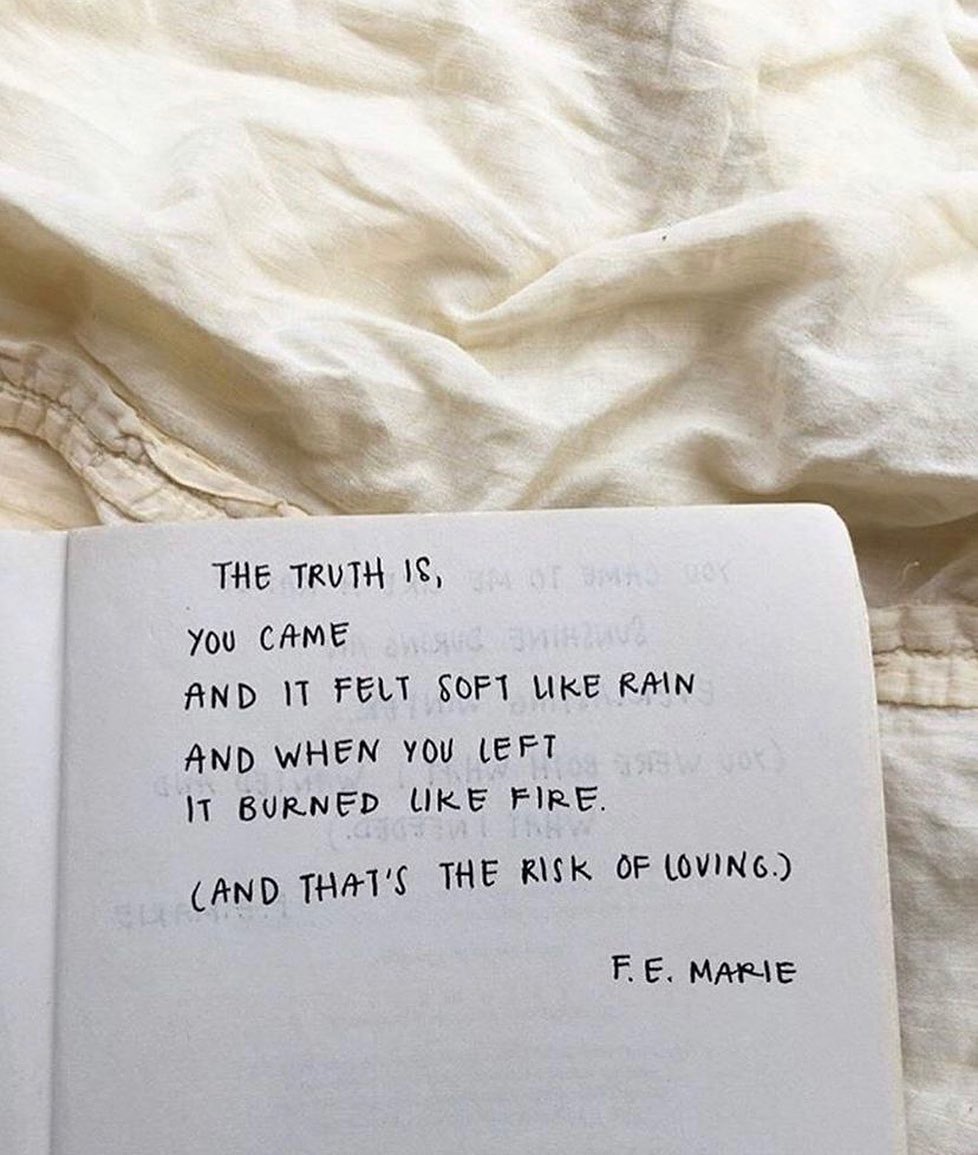 THE TRUTH IS,
YOU CAME
AND IT FELT SOFT LIKE RAIN
AND WHEN YOU LEFT
IT BURNED LIKE FIRE.
(AND THAT'S THE RISK OF LOVING.)
F. E. MARIE